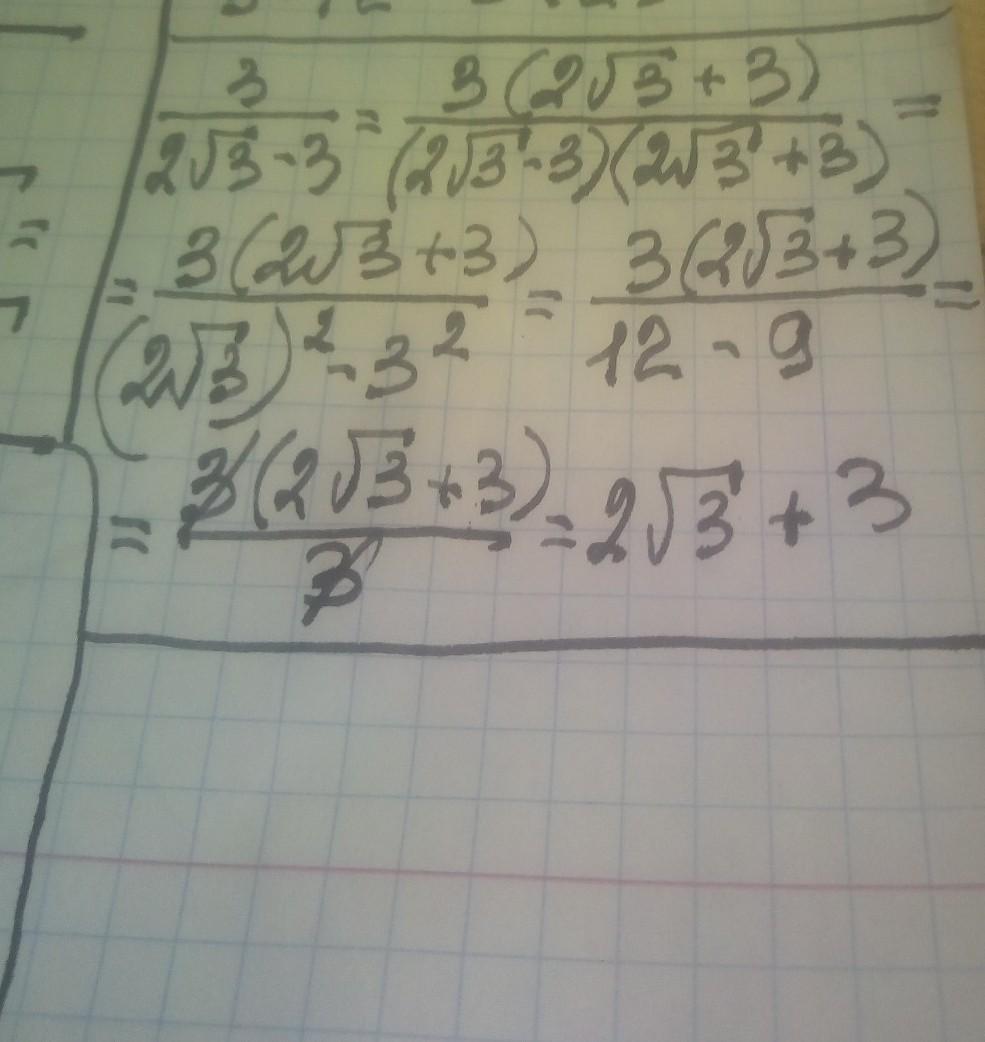 3/(2√3-3) = 3(2√3+3)/((2√3-3)(2√3+3)) =
= 3(2√3+3)/((2√3)²-3²) = 3(2√3+3)/(12-9) =
= 3(2√3+3)/3 = 2√3+3